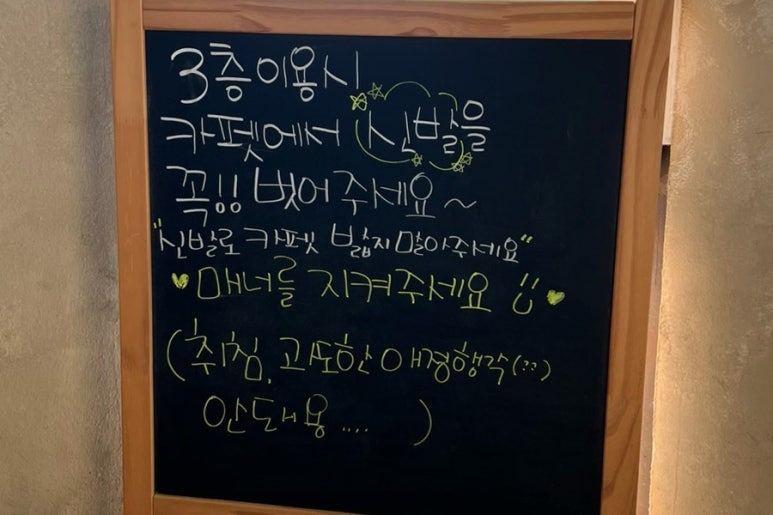 3층 이용시
카펫에서 신발을
꼭!!! 벗어주세요~
"신발로 카펫 밟지 말아주세요"
매너를 지켜주세요
(취침, 과도한 애정행각(??)
안돼용....)